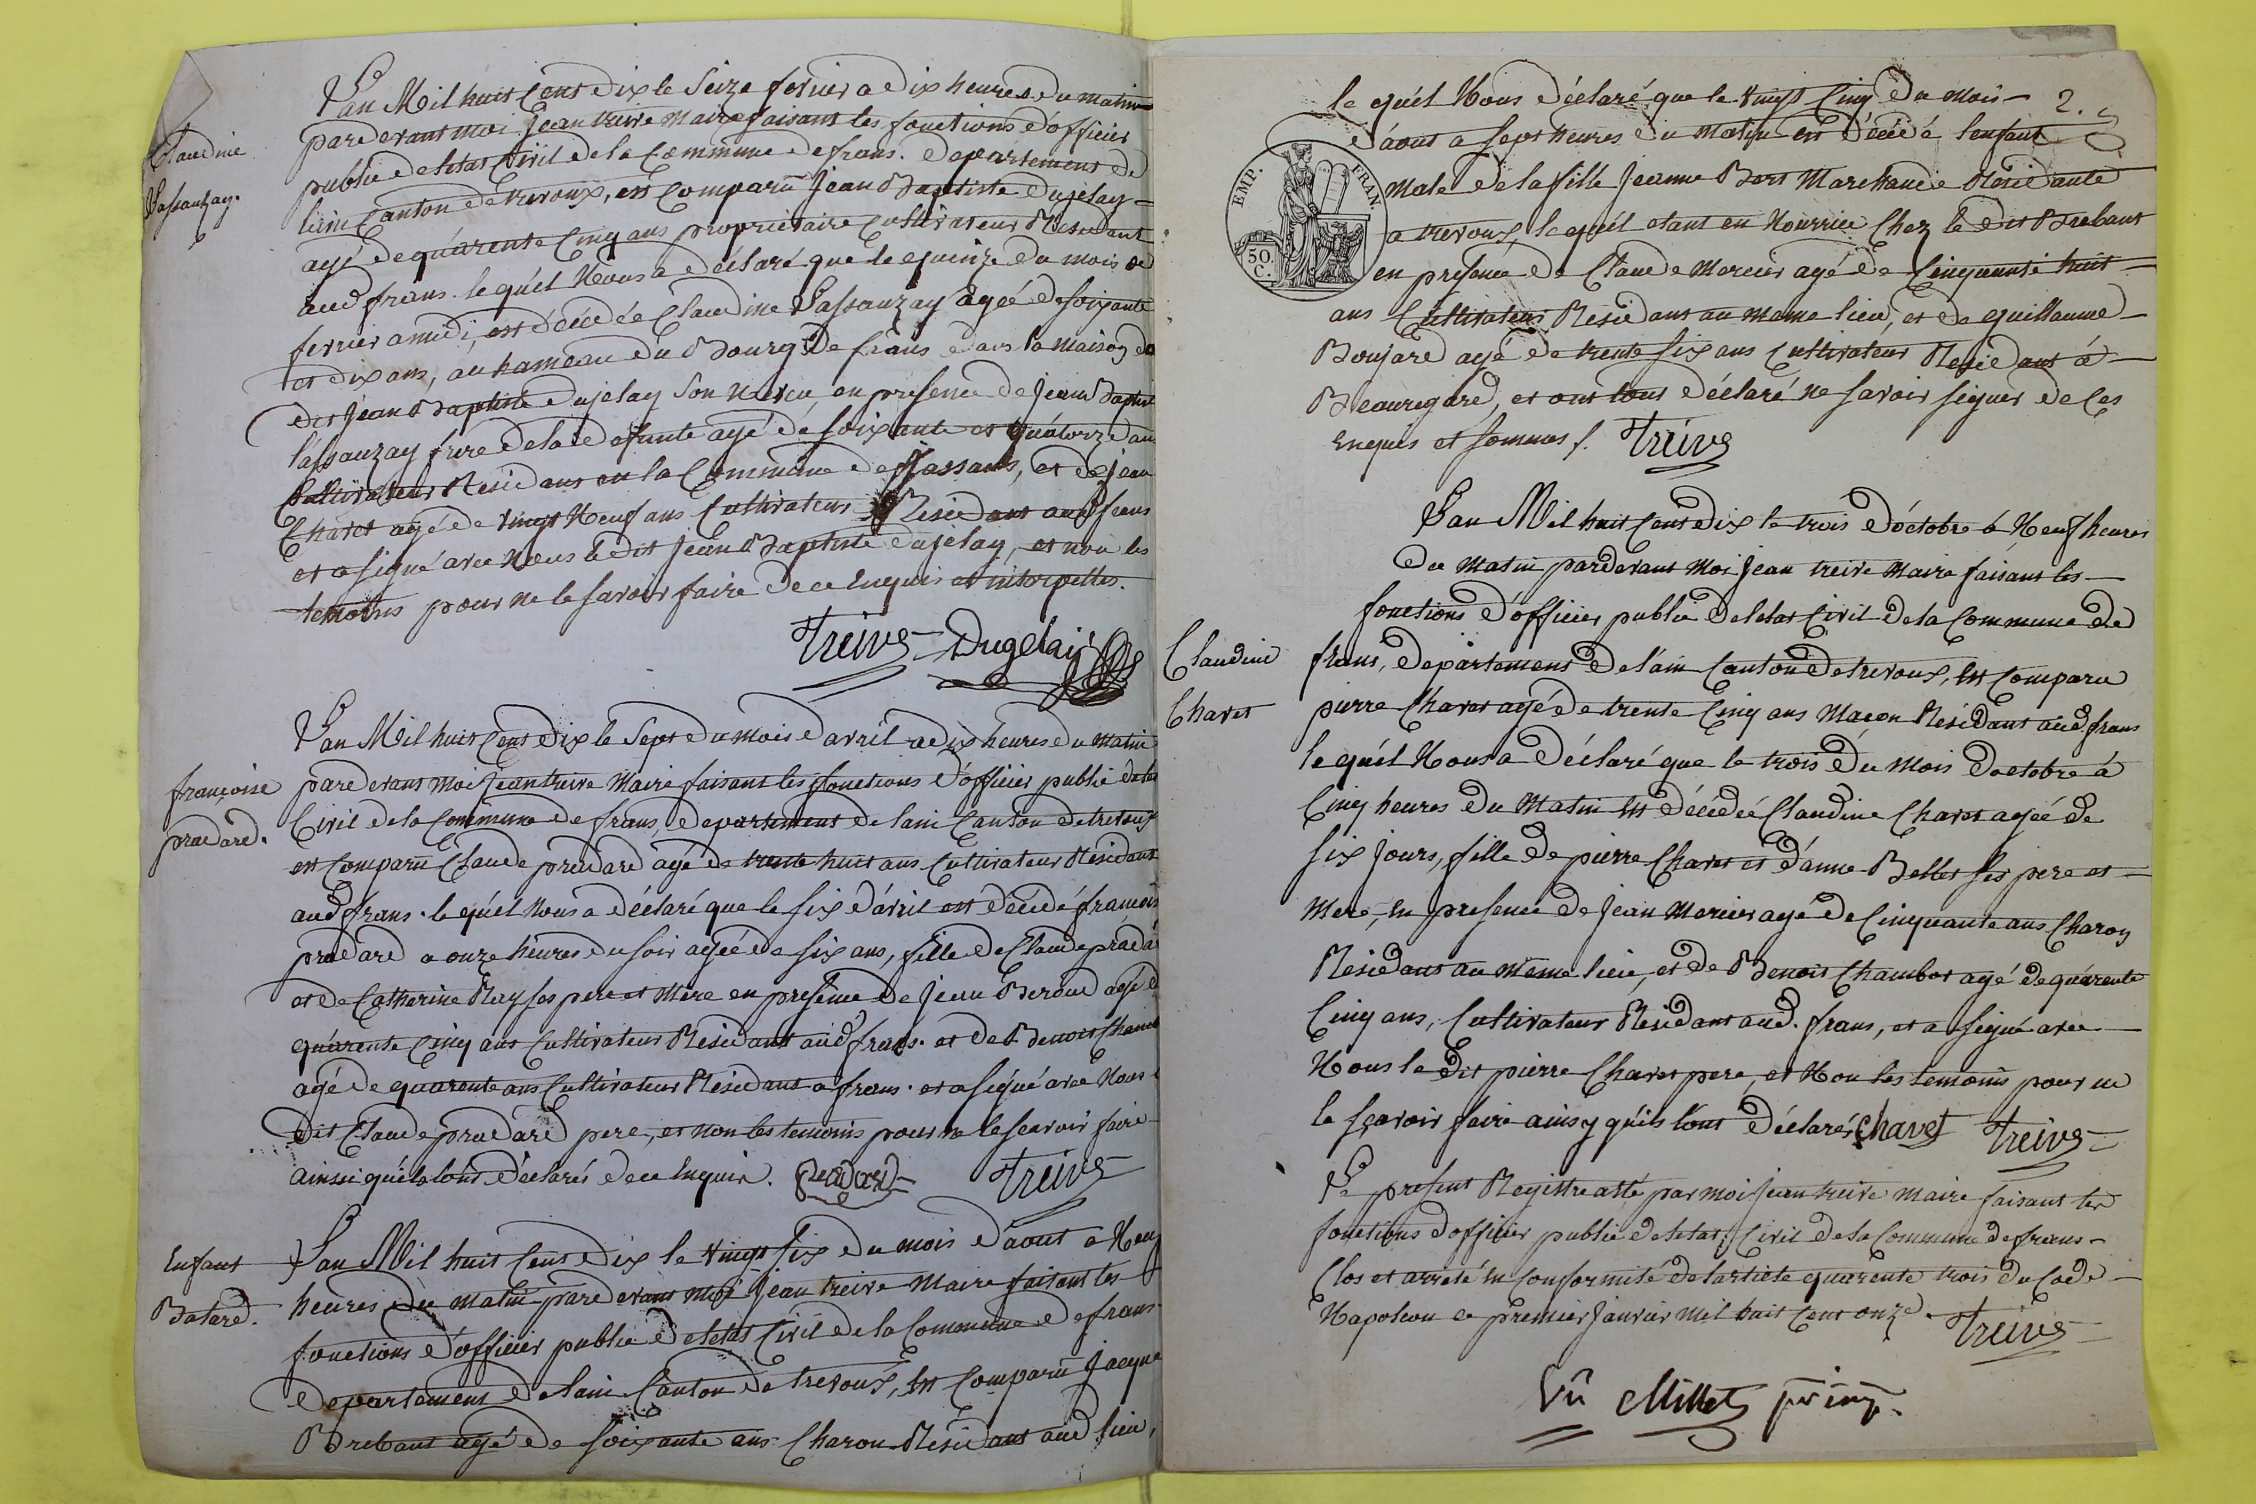 Claudine
Lassauzay.
L'an Mil huit Cent dix le Seize fevrier a dix heures du matin
pardevant moi Jean treive Maire faisant les fonctions d'officier
public de letat Civil de la Commune de frans. departement de
lain Canton de trevoux, est Comparu Jean Baptiste dujelay
agé de quarente Cinq ans proprietaire Cultivateur Residant
aud frans. lequél Nous a déclaré que le quinze du mois de
fevrier a midi, est décédée Claudine Lassauzay agéé de soixante
et dix ans, au hameau du Bourg de frans dans la maison du
dit Jean Baptiste dujelay Son Neveu, en presence de Jean Baptiste
lassauzay frere de la defunte agé de soixante et quatorze ans
Cultivateur Residant en la Commune de Massans, et de Jean
Chavet agé de vingt Neuf ans Cultivateur Residant aud frans
et a signé avec Nous le dit Jean Baptiste dujelay, et non les
temoins pour ne le savoir faire de ce Enquis et interpellés.
Treive Dugelai
françoise
pradard.
L'an Mil huit Cent dix le Sept du mois d'avril a dix heures du matin
pardevant moi Jean treive Maire faisant les fonctions d'officier public de letat
Civil de la Commune de frans, departement de lain Canton de trevoux
est Comparu Claude pradard agé de trente huit ans Cultivateur Residant
aud frans. lequél nous a déclaré que le six d'avril est décédé françoise
pradard a onze heures du soir agéé de six ans, fille de Claude pradard
et de Catherine Ray ses pere et Mere en presence de Jean Beroud agé de
quarente Cinq ans Cultivateur Residant aud frans. et de Benoit Chambet
agé de quarente ans Cultivateur Residant a frans. et a signé avec Nous le
dit Claude pradard pere, et non les temoins pour ne le scavoir faire
ainsi quéls lont déclarés de ce Enquis. pradard Treive
Enfant
Batard.
L'an Mil huit Cent dix le vingt six du mois d'aout a Neuf
heures du matin pardevant moi Jean treive Maire faisant les
fonctions d'officier public de letat Civil de la Commune de frans
departement de lain Canton de trevoux, est Comparu Jacque
Brebant agé de soixante ans Charon Residant aud lieu,
2.
lequél Nous déclaré que le vingt Cinq du mois
d'aout a sept heures du matin est décédé lenfant
male de la fille Jeanne Bort Marchande Residante
a trevoux, lequél etant en Nourrice Chez le dit Brebant
en presence de Claude Mercier agé de Cinquante huit
ans Cultivateur Residant au meme lieu, et de guillaume
Boujard agé de trente six ans Cultivateur Residant á
Beauregard, et ont tous déclaré ne savoir signer de Ces
Enquis et sommés /. Treive
EMP. FRAN.
50.
C.
Claudine
Chavet
L'an Mil huit Cent dix le trois d'octobre á Neuf heures
du Matin pardevant Moi Jean treive Maire faisant les
fonctions d'officier public de letat Civil de la Commune de
frans, departement de l'ain Canton de trevoux, est Comparu
pierre Chavet agé de trente Cinq ans Maçon Residant aud. frans
lequél Nous a déclaré que le trois du mois d'octobre á
Cinq heures du Matin est décédéé Claudine Chavet agéé de
six jours, fille de pierre Chavet et d'anne Bellet ses pere et
Mere, en presence de Jean Mercier agé de Cinquante ans Charon
Residant au même lieu, et de Benoit Chambet agé de quarente
Cinq ans, Cultivateur Residant aud. frans, et a signé avec
Nous le dit pierre Chavet pere, et Non les temoins pour ne
le sçavoir faire ainsy quéls lont déclarés Chavet Treive
Le present Registre a été par moi Jean treive Maire faisant les
fonctions d'officier public de letat Civil de la Commune de frans
Clos et arreté en Conformité de larticle quarente trois du Code
Napoleon ce premier Janvier Mil huit Cent onze. Treive
Vu Millet